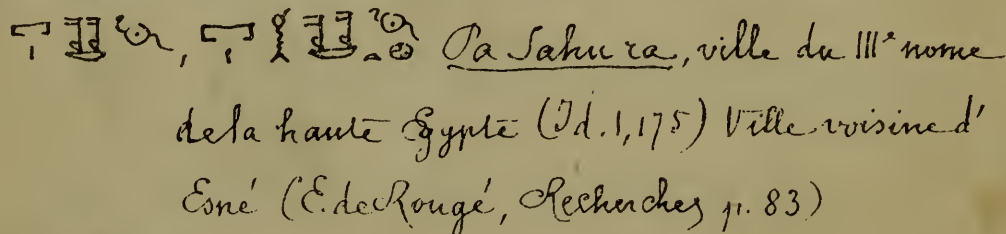 Pa Sahura, ville du III^e nome
de la haute Égypte (Id. 1, 175) Ville voisine d'
Esné (E. de Rougé, Recherches p. 83)